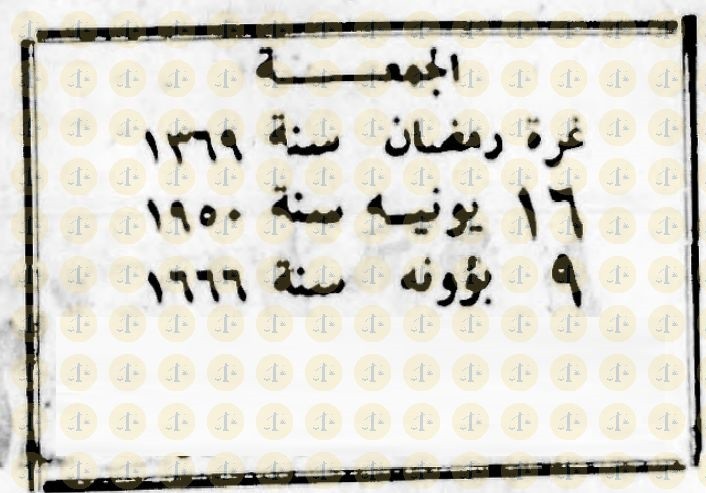 الجمعــــــة
غرة رمضان سنة ١٣٦٩
١٦ يونيــه سنة ١٩٥٠
٩ بؤونه سنة ١٦٦٦